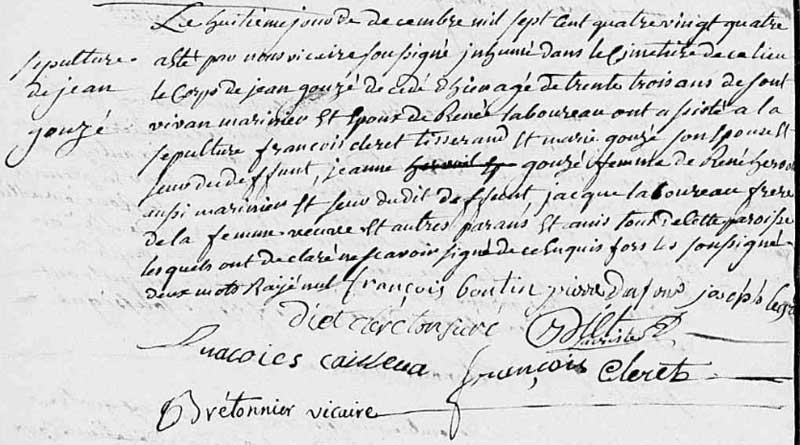 Le huitieme jour de decembre mil sept cent quatre vingt quatre
sepulture
de jean
gouzé
a été par nous vicaire soussigné inhumé dans le cimetiere de ce lieu
le corps de jean gouzé decédé d'hier agé de trente trois ans de sont
vivan marinier et Epoux de Renée laboureau ont assisté a la
sepulture françois cleret tisserand et marie gouzé son Epouse et
seur du deffunt, jeanne gouzé femme de René
aussi marinier et seur du dit deffunt jacque laboureau frere
de la femme veuve et autres parans et amis tous de cette paroisse
lesquels ont declaré ne scavoir signé de ce enquis fors les soussigné
deux mots Rayé nul françois boutin pierre joseph
Diet clerc tonsuré Diet
françois
cleret
Brétonnier vicaire